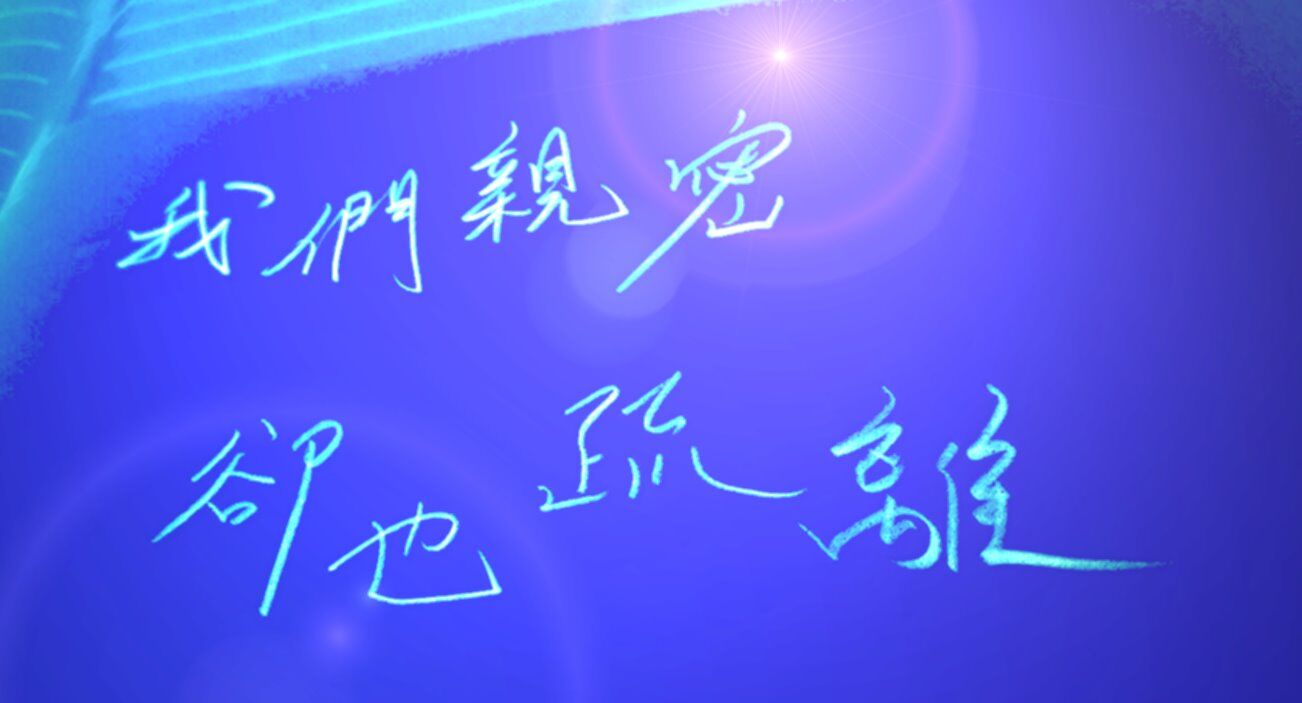 我們親密
卻也疏離